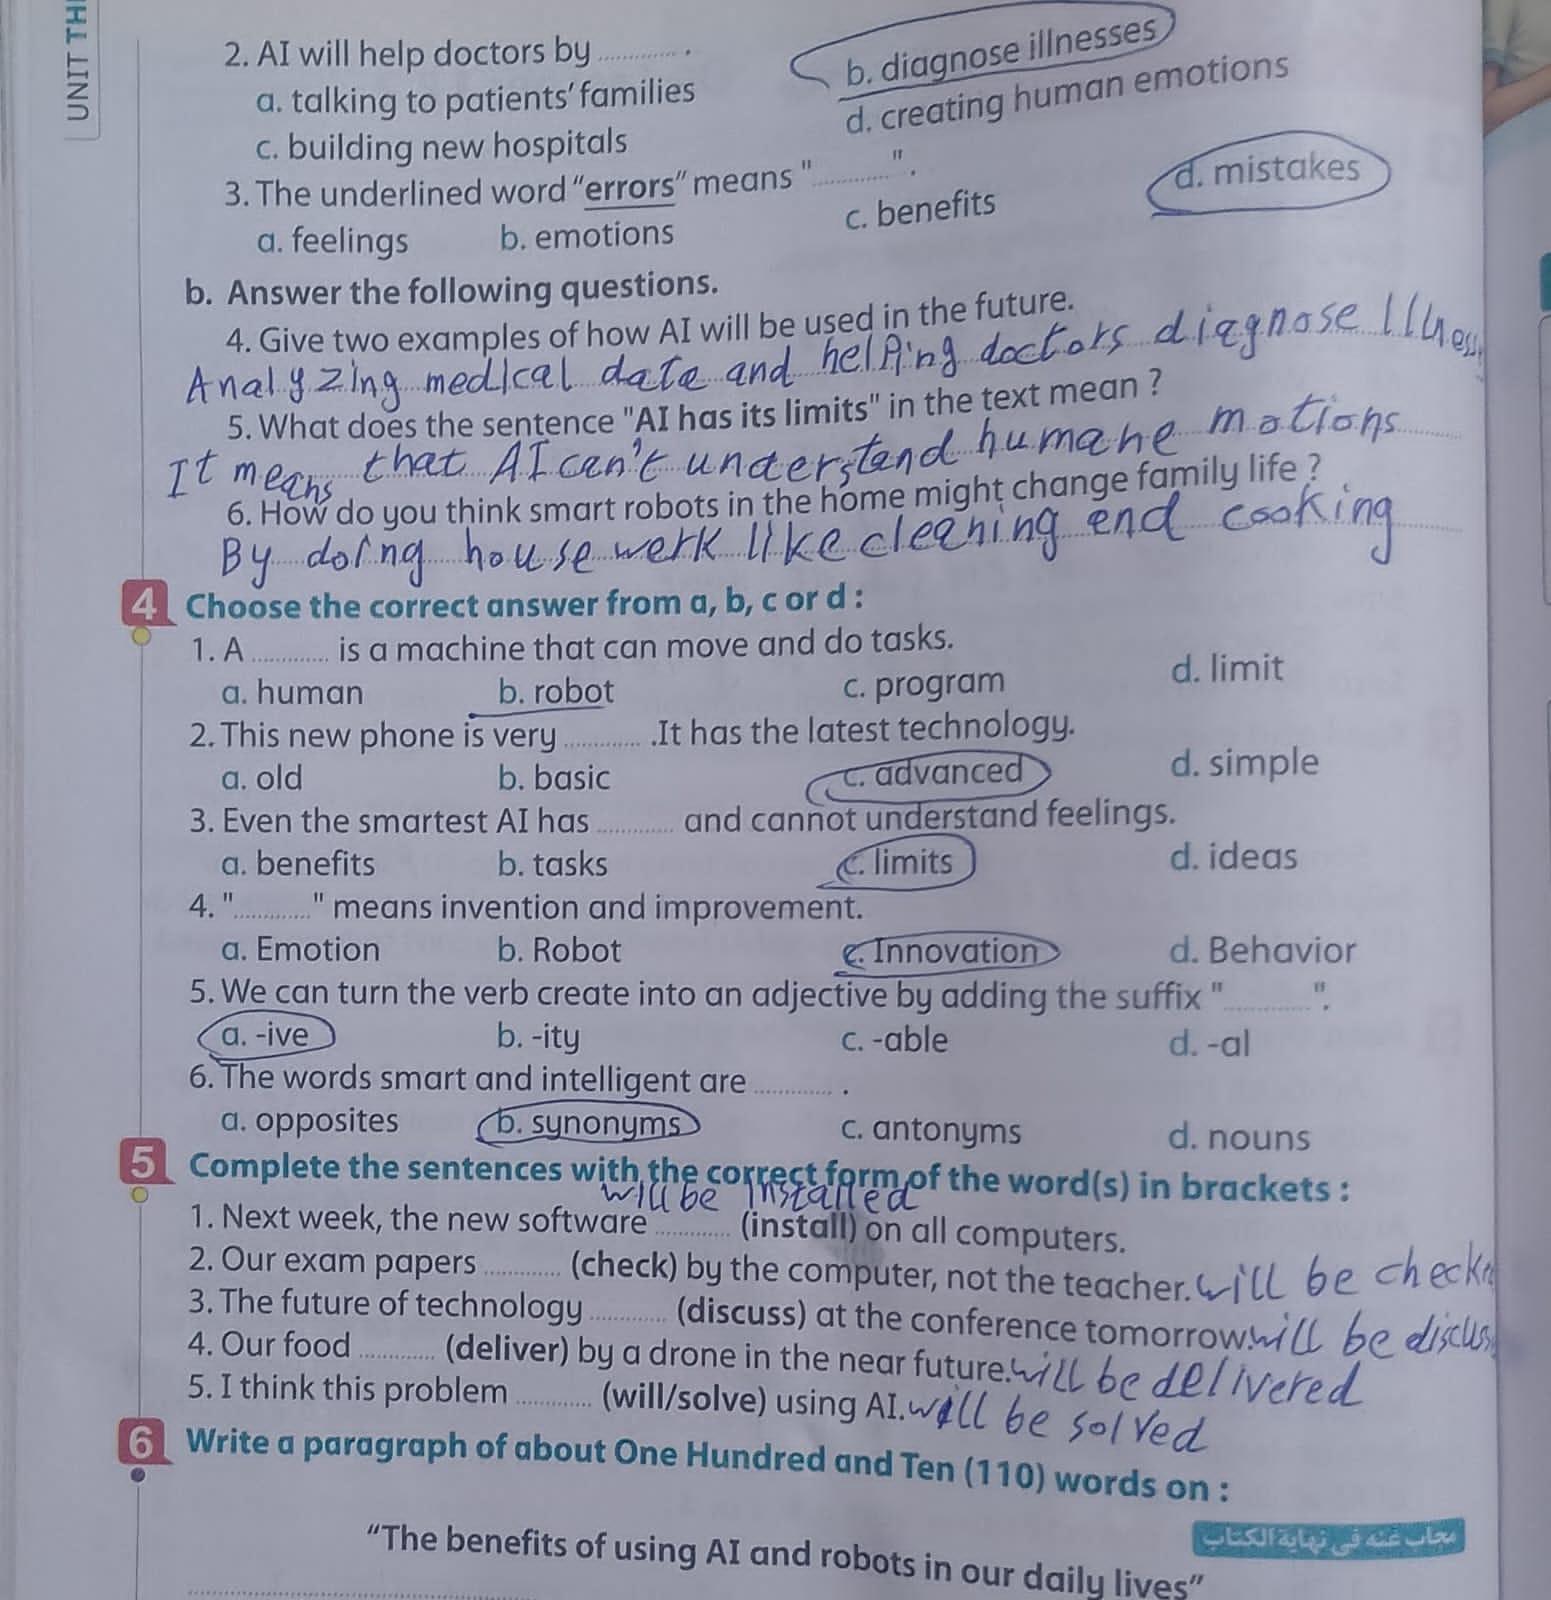 UNIT TH
2. AI will help doctors by ............ .
a. talking to patients' families
b. diagnose illnesses
c. building new hospitals
d. creating human emotions
3. The underlined word "errors" means "............".
a. feelings b. emotions c. benefits d. mistakes
b. Answer the following questions.
4. Give two examples of how AI will be used in the future.
Analyzing medical data and helping doctors diagnose
5. What does the sentence "AI has its limits" in the text mean ?
It means that AI can't understand humane motions
6. How do you think smart robots in the home might change family life ?
By doing house werk like cleaning end cooking
4 Choose the correct answer from a, b, c or d :
1. A ............ is a machine that can move and do tasks.
a. human b. robot c. program d. limit
2. This new phone is very ............ .It has the latest technology.
a. old b. basic c. advanced d. simple
3. Even the smartest AI has ............ and cannot understand feelings.
a. benefits b. tasks c. limits d. ideas
4. "............" means invention and improvement.
a. Emotion b. Robot c. Innovation d. Behavior
5. We can turn the verb create into an adjective by adding the suffix "............".
a. -ive b. -ity c. -able d. -al
6. The words smart and intelligent are ............ .
a. opposites b. synonyms c. antonyms d. nouns
5 Complete the sentences with the correct form of the word(s) in brackets :
will be installed
1. Next week, the new software ............ (install) on all computers.
2. Our exam papers ............ (check) by the computer, not the teacher. will be
3. The future of technology ............ (discuss) at the conference tomorrow. will be
4. Our food ............ (deliver) by a drone in the near future. will be delivered
5. I think this problem ............ (will/solve) using AI. will be solved
6 Write a paragraph of about One Hundred and Ten (110) words on :
مجاب عنه في نهاية الكتاب
"The benefits of using AI and robots in our daily lives"